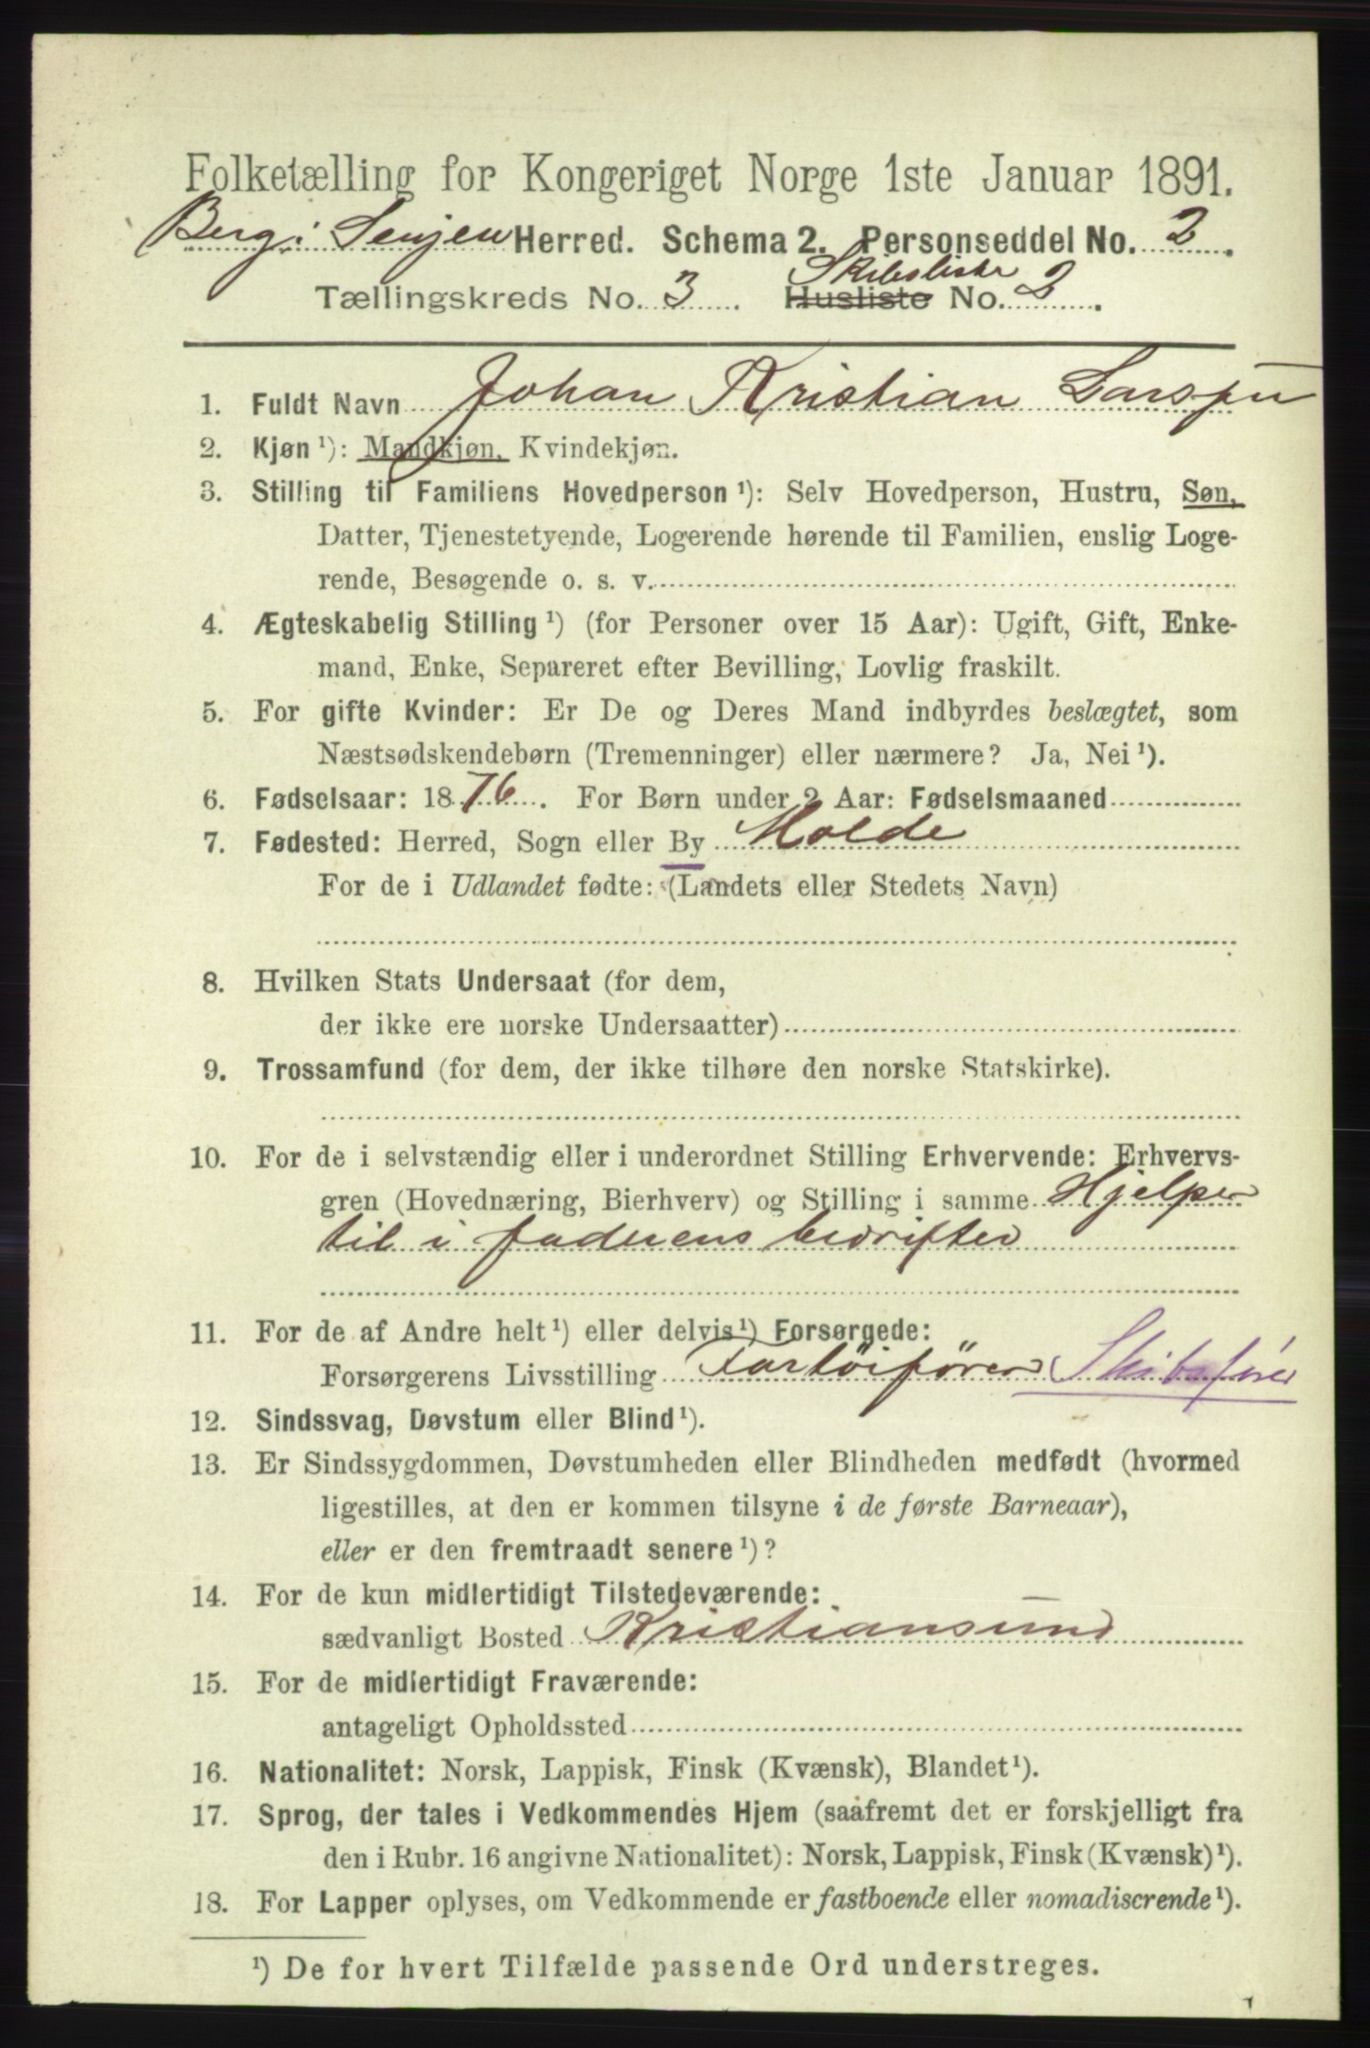 Folketælling for Kongeriget Norge 1ste Januar 1891.
Berg i Senjen Herred. Schema 2. Personseddel No. 2.
Skibsliste
Tællingskreds No. 3. Husliste No. 2.
1. Fuldt Navn Johan Kristian Larssen
2. Kjøn ¹): Mandkjøn, Kvindekjøn.
3. Stilling til Familiens Hovedperson ¹): Selv Hovedperson, Hustru, Søn,
Datter, Tjenestetyende, Logerende hørende til Familien, enslig Loge-
rende, Besøgende o. s. v.
4. Ægteskabelig Stilling ¹) (for Personer over 15 Aar): Ugift, Gift, Enke-
mand, Enke, Separeret efter Bevilling, Lovlig fraskilt.
5. For gifte Kvinder: Er De og Deres Mand indbyrdes beslægtet, som
Næstsødskendebørn (Tremenninger) eller nærmere? Ja, Nei ¹).
6. Fødselsaar: 1876. For Børn under 2 Aar: Fødselsmaaned
7. Fødested: Herred, Sogn eller By Molde
For de i Udlandet fødte: (Landets eller Stedets Navn)
8. Hvilken Stats Undersaat (for dem,
der ikke ere norske Undersaatter)
9. Trossamfund (for dem, der ikke tilhøre den norske Statskirke).
10. For de i selvstændig eller i underordnet Stilling Erhvervende: Erhvervs-
gren (Hovednæring, Bierhverv) og Stilling i samme Hjelper
til i faderens bedrifter
11. For de af Andre helt ¹) eller delvis ¹) Forsørgede:
Forsørgerens Livsstilling Fartøifører Skibsfører
12. Sindssvag, Døvstum eller Blind ¹).
13. Er Sindssygdommen, Døvstumheden eller Blindheden medfødt (hvormed
ligestilles, at den er kommen tilsyne i de første Barneaar),
eller er den fremtraadt senere ¹)?
14. For de kun midlertidigt Tilstedeværende:
sædvanligt Bosted Kristiansund
15. For de midlertidigt Fraværende:
antageligt Opholdssted
16. Nationalitet: Norsk, Lappisk, Finsk (Kvænsk), Blandet ¹).
17. Sprog, der tales i Vedkommendes Hjem (saafremt det er forskjelligt fra
den i Rubr. 16 angivne Nationalitet): Norsk, Lappisk, Finsk (Kvænsk) ¹).
18. For Lapper oplyses, om Vedkommende er fastboende eller nomadiserende ¹).
¹) De for hvert Tilfælde passende Ord understreges.